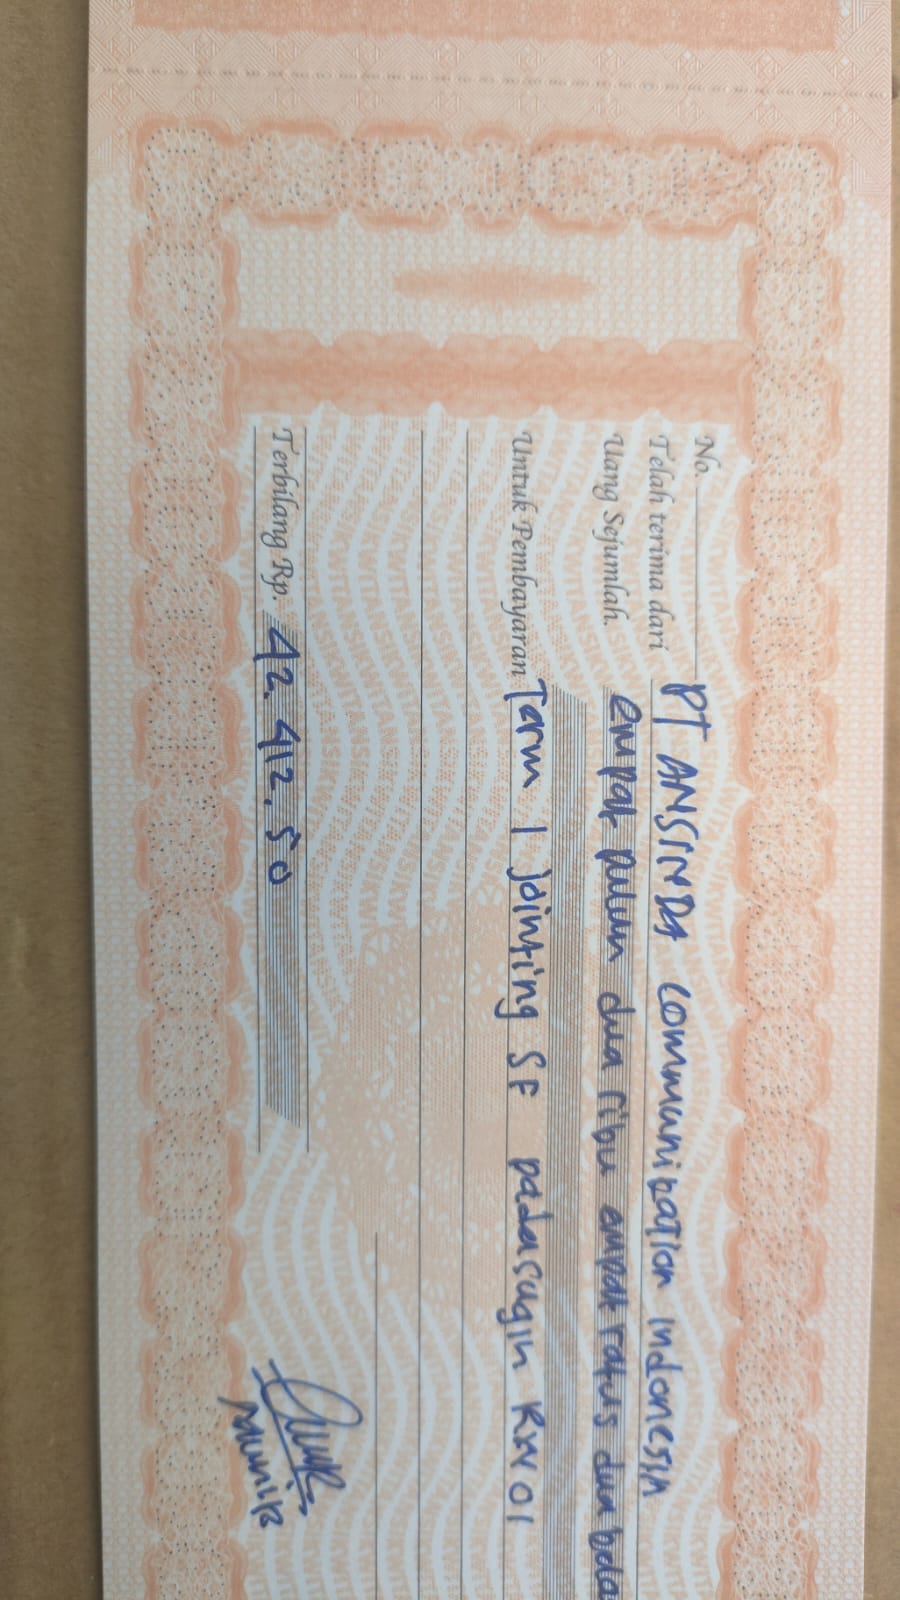 No.
Telah terima dari PT ANSINDA Communication Indonesia
Uang Sejumlah. empat puluh dua ribu empat ratus dua bela
Untuk Pembayaran Term 1 jointing SF padasugih RW 01
Terbilang Rp. 42.412.50